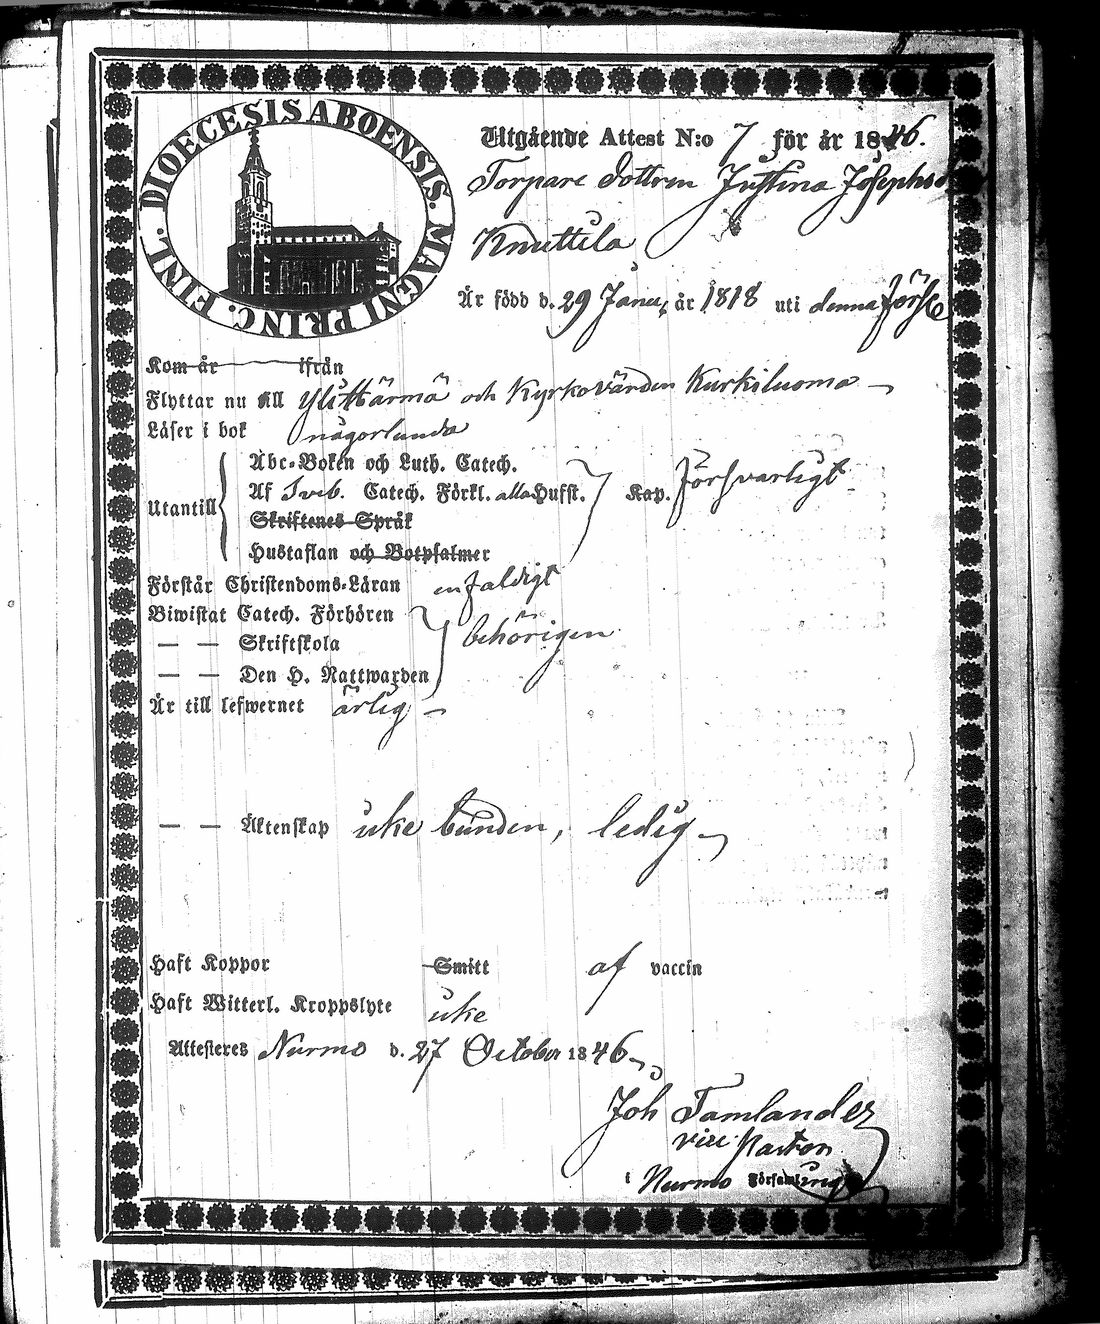 DIOECESIS ABOENSIS. MAGNI PRINC. FINL.
Utgående Attest N:o 7 för år 1846.
Torpare dottren Justina Josephsd
Knuttila
Är född d. 29 Janu, år 1818 uti denna förs
Kom år ifrån
Flyttar nu till Ylihärmä och Kyrkovärden Kurkiluoma
Läser i bok någorlunda
Abc-Boken och Luth. Catech.
Utantill Af Sveb. Catech. Förkl. alla Hufst. Kap. försvarligt
Skriftenes Språk
Hustaflan och Botpsalmer
Förstår Christendoms-Läran enfaldigt
Biwistat Catech. Förhören
— — Skriftskola behörigen
— — Den H. Nattwarden
Är till lefwernet ärlig
— — Äktenskap icke bunden, ledig
Haft Koppor Smitt af vaccin
Haft Witterl. Kroppslyte icke
Attesteres Nurmo d. 27 October 1846
Joh Tamlander
vice Pastor
i Nurmo Församling